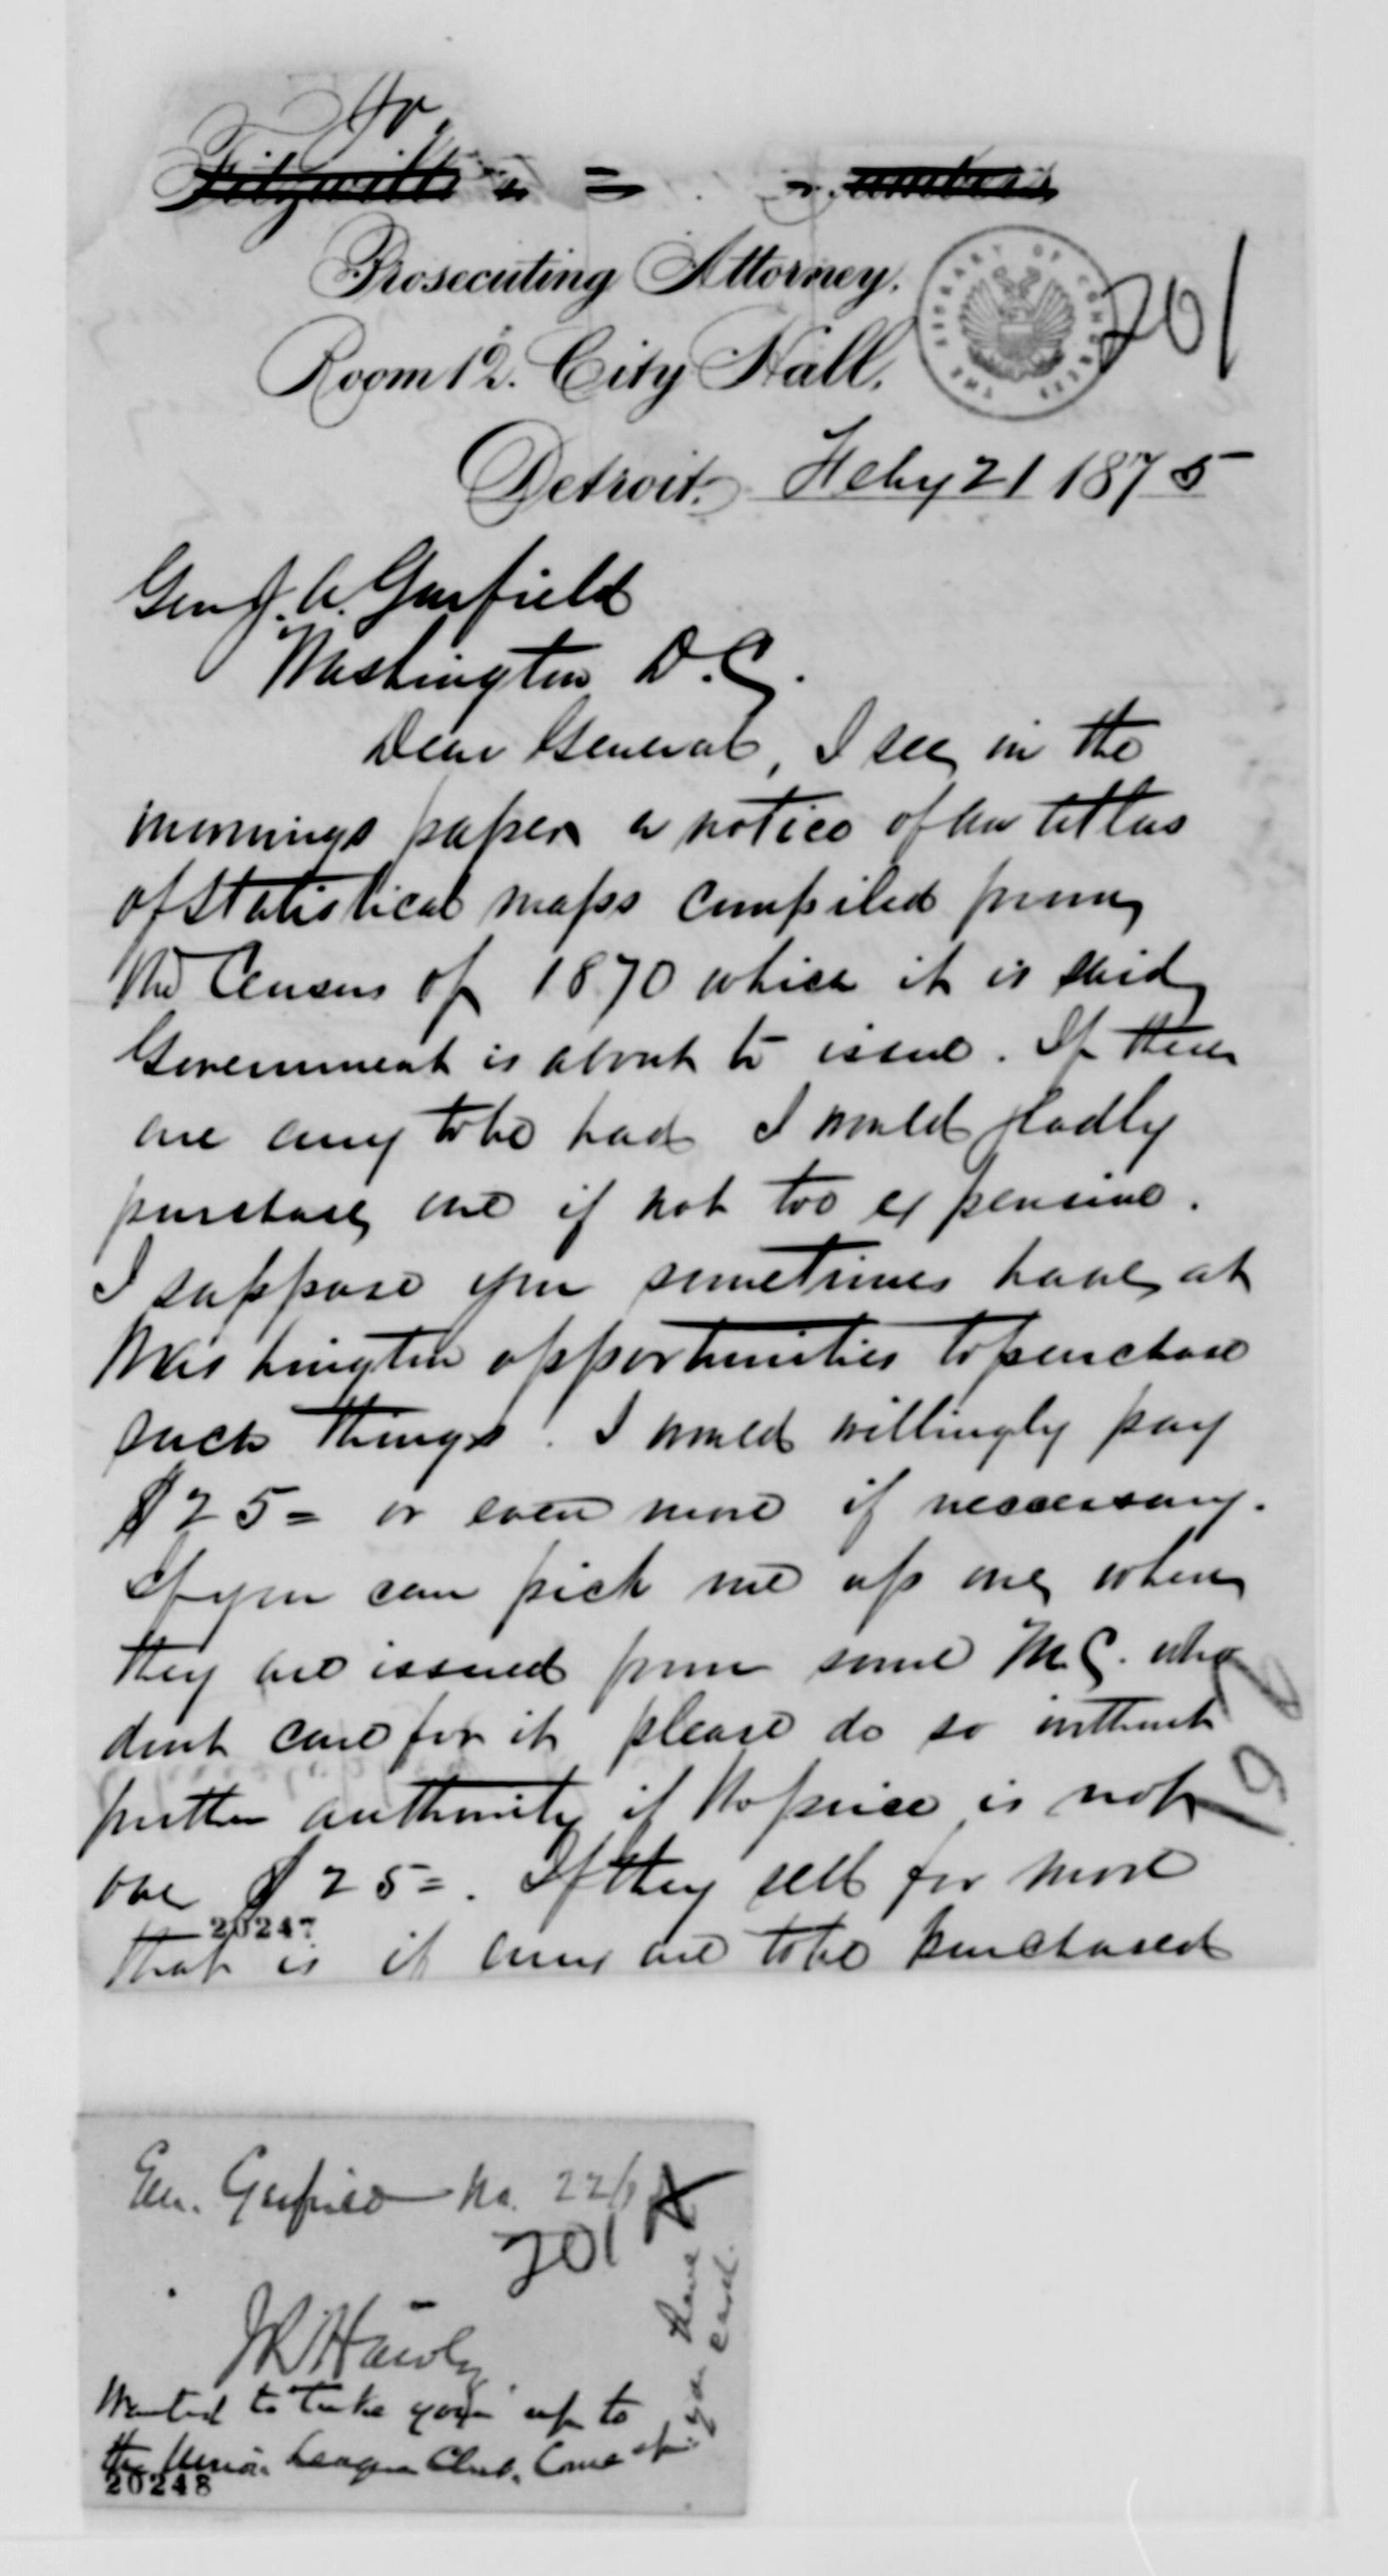 Prosecuting Attorney.
Room 12. City Hall.
THE LIBRARY OF CONGRESS
201
Detroit. Feby 21 1875
Gen J. A. Garfield
Washington D.C.
Dear General, I see in the
mornings paper a notice of an Atlas
of Statistical maps compiled from
the Census of 1870 which it is said
Government is about to issue. If there
are any to be had I would gladly
purchase one if not too expensive.
I suppose you sometimes have at
Washington opportunities to purchase
such things. I would willingly pay
$25= or even more if neccessary.
If you can pick me up one when
they are issued from some M.C. who
dont care for it please do so without
further authority if the price is not
over $25=. If they sell for more
20247
that is if any are to be purchased
Gen. Garfield No. 22
201
JR Hawley
Wanted to take you up to
the Union League Club. Come up
if you have
card.
20248